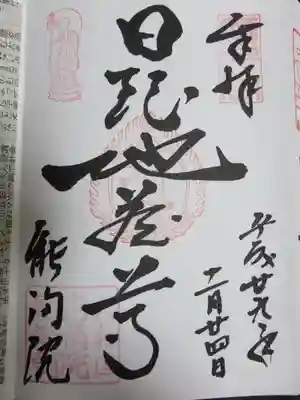 奉拝
日限地蔵尊
平成廿九年
月廿四日
能満院